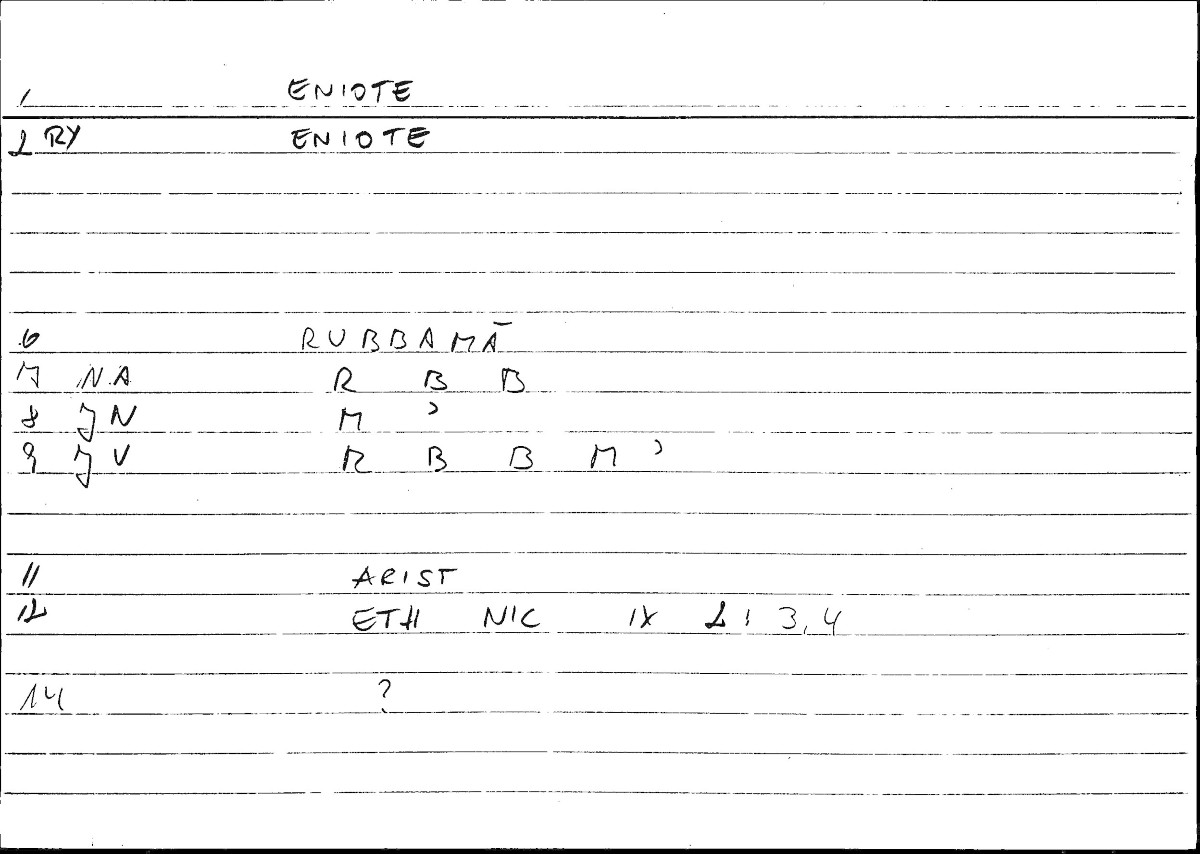 1 ENIOTE
2 RY ENIOTE
6 RUBBAMĀ
7 NA R B B
8 JN M ʾ
9 JV R B B M ʾ
11 ARIST
12 ETH NIC IX 2: 3,4
14 ?